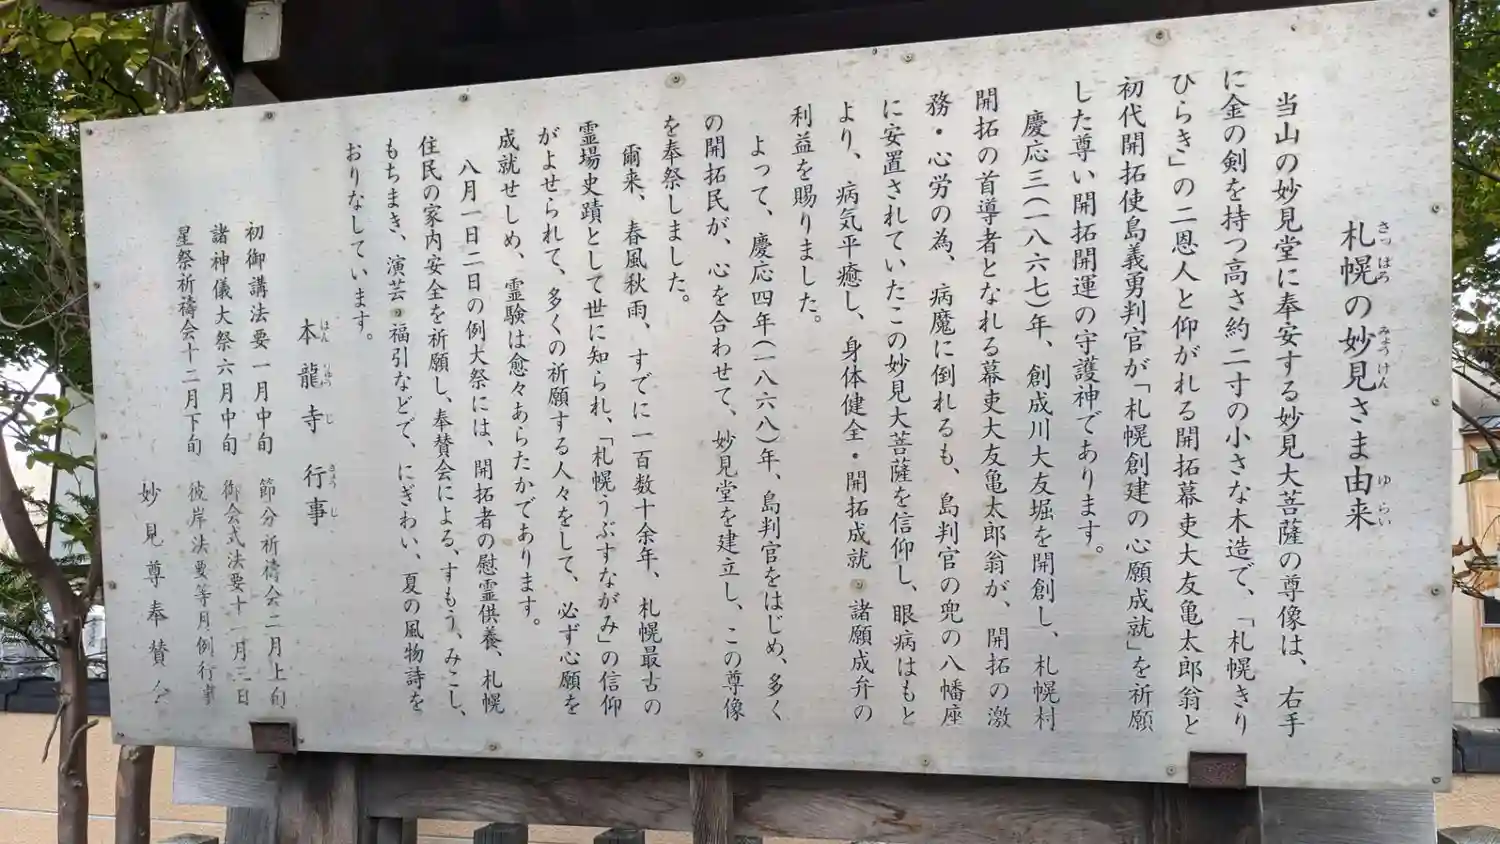 札幌の妙見さま由来
さっぽろ みょうけん ゆらい
当山の妙見堂に奉安する妙見大菩薩の尊像は、右手
に金の剣を持つ高さ約二寸の小さな木造で、「札幌きり
ひらき」の二恩人と仰がれる開拓幕吏大友亀太郎翁と
初代開拓使島義勇判官が「札幌創建の心願成就」を祈願
した尊い開拓開運の守護神であります。
慶応三(一八六七)年、創成川大友堀を開創し、札幌村
開拓の首導者となれる幕吏大友亀太郎翁が、開拓の激
務・心労の為、病魔に倒れるも、島判官の兜の八幡座
に安置されていたこの妙見大菩薩を信仰し、眼病はもと
より、病気平癒し、身体健全・開拓成就・諸願成弁の
利益を賜りました。
よって、慶応四年(一八六八)年、島判官をはじめ、多く
の開拓民が、心を合わせて、妙見堂を建立し、この尊像
を奉祭しました。
爾来、春風秋雨、すでに一百数十余年、札幌最古の
霊場史蹟として世に知られ、「札幌うぶすながみ」の信仰
がよせられて、多くの祈願する人々をして、必ず心願を
成就せしめ、霊験は愈々あらたかであります。
八月一日二日の例大祭には、開拓者の慰霊供養、札幌
住民の家内安全を祈願し、奉賛会による、すもう、みこし、
もちまき、演芸・福引などで、にぎわい、夏の風物詩を
おりなしています。
本龍寺 行事
ほんりゅうじ ぎょうじ
初御講法要一月中旬 節分祈祷会二月上旬
諸神儀大祭六月中旬 御会式法要十一月三日
星祭祈祷会十二月下旬 彼岸法要等月例行事
妙見尊奉賛会